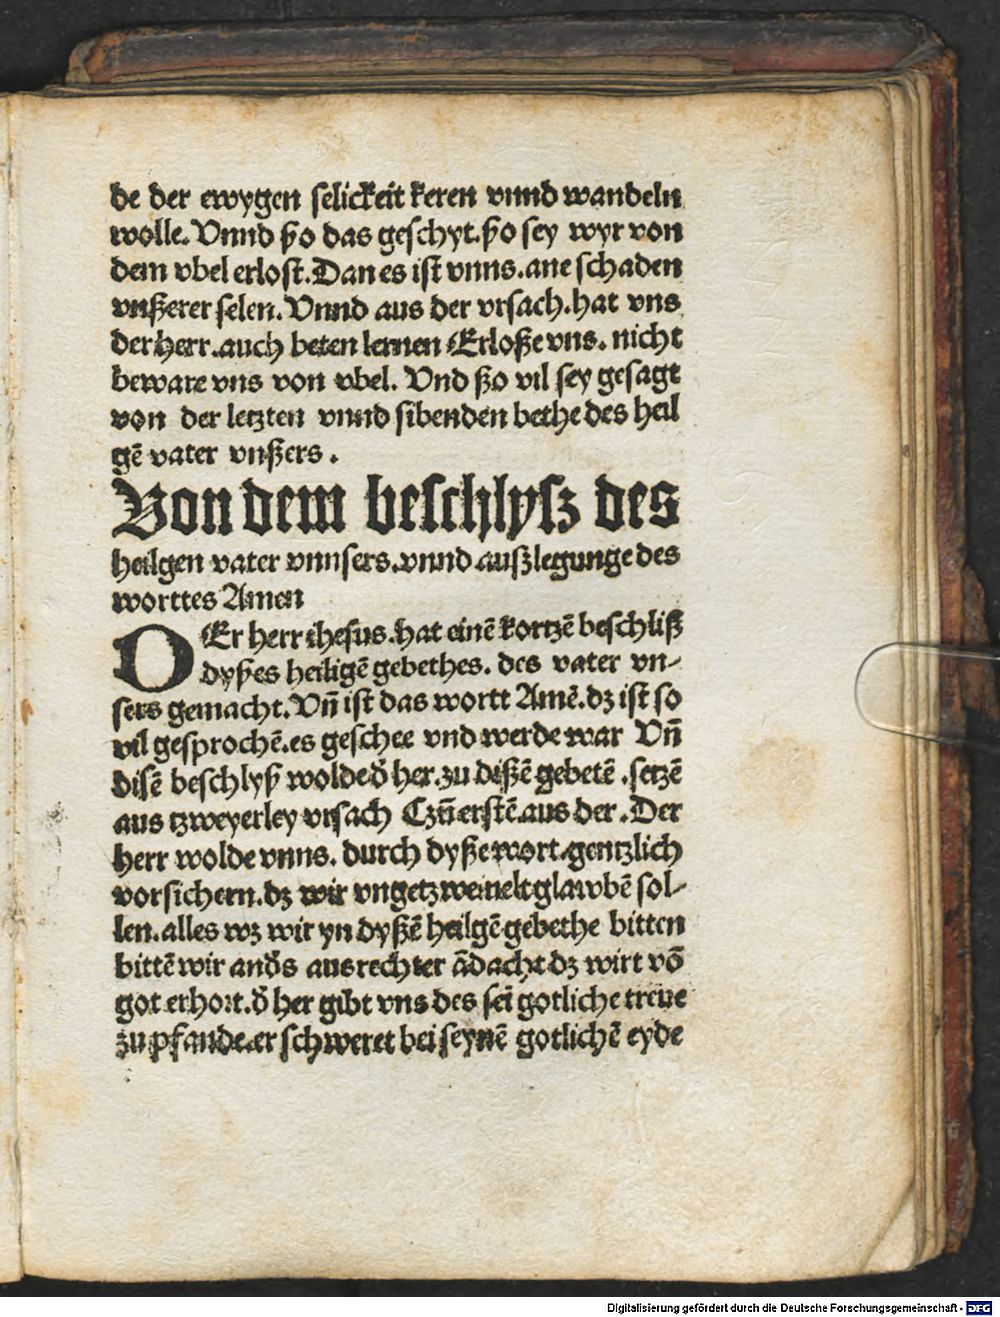 de der ewygen selickeit keren vnnd wandeln
wolle. Vnnd ßo das geschyt. ßo sey wyr von
dem vbel erlost. Dan es ist vnns. ane schaden
vnßerer selen. Vnnd aus der vrsach. hat vns
der herr. auch beten lernen Erloße vns. nicht
beware vns von vbel. Vnd ßo vil sey gesagt
von der letzten vnnd sibenden bethe des heil
gē vater vnßers.
Von dem beschlysz des
heilgen vater vnnsers. vnnd außlegunge des
worttes Amen
DEr herr ihesus. hat einē kortzē beschliß
dyßes heiligē gebethes. des vater vn-
sers gemacht. Vn̄ ist das wortt Amē. dz ist so
vil gesprochē. es geschee vnd werde war Vn̄
disē beschlyß wolde d̄ her. zu dißē gebetē. setzē
aus tzweyerley vrsach Czū erstē. aus der. Der
herr wolde vnns. durch dyße wort. gentzlich
vorsichern. dz wir vngetzweiuelt glawbē sol-
len. alles wz wir yn dyßē heilgē gebethe bitten
bittē wir and̄s aus rechter ādacht dz wirt vō
got erhort. d̄ her gibt vns des sei gotliche treue
zu pfande. er schweret bei seynē gotlichē eyde
Digitalisierung gefördert durch die Deutsche Forschungsgemeinschaft - DFG